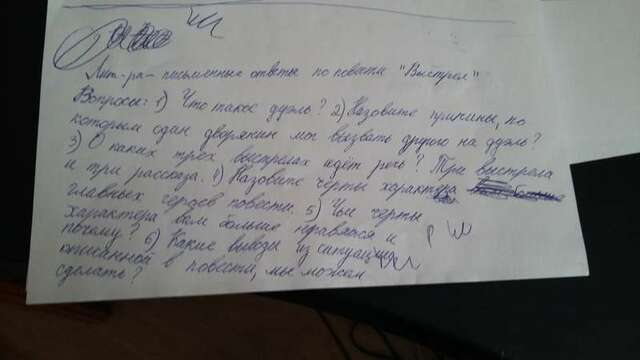 Лит-ра- письменные ответы по повести "Выстрел"
Вопросы: 1) Что такое дуэль? 2) Назовите причины, по
которым один дворянин мог вызвать другого на дуэль?
3) О каких трёх выстрелах идёт речь? Три выстрела
и три рассказа. 4) Назовите черты характера
главных героев повести. 5) Чьи черты
характера вам больше нравятся и
почему? 6) Какие выводы из ситуации
описанной в повести, мы можем
сделать?